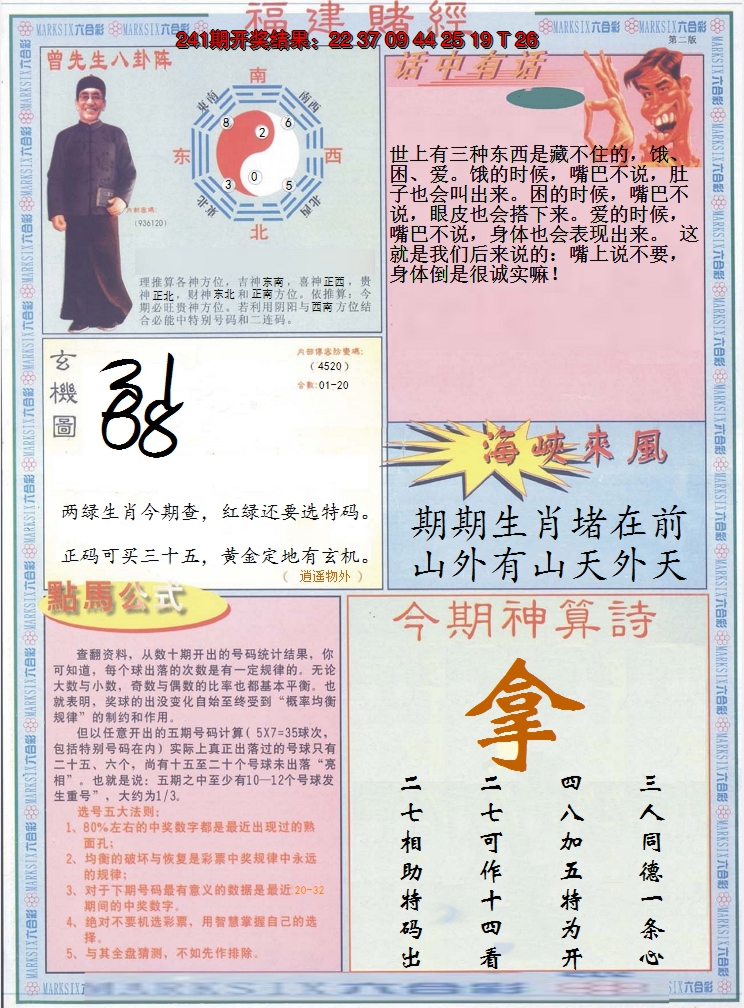 福建賭經
241期开奖结果：22 37 09 44 25 19 T 26
MARKSIX六合彩
MARKSIX六合彩
MARKSIX六合彩
第二版
曾先生八卦阵
南
東南
南西
8
2
6
东
西
3
0
5
東北
北西
北
内部密碼：
（936120）
理推算各神方位，吉神东南，喜神正西，贵
神正北，财神东北和正南方位。依推算：今
期必旺贵神方位。若利用阴阳与西南方位结
合必能中特别号码和二连码。
话中有话
世上有三种东西是藏不住的，饿、
困、爱。饿的时候，嘴巴不说，肚
子也会叫出来。困的时候，嘴巴不
说，眼皮也会搭下来。爱的时候，
嘴巴不说，身体也会表现出来。 这
就是我们后来说的：嘴上说不要，
身体倒是很诚实嘛！
玄機圖
内部傳客防變碼：
（4520）
合数：01-20
两绿生肖今期查，红绿还要选特码。
正码可买三十五，黄金定地有玄机。
（ 逍遥物外 ）
海峽來風
期期生肖堵在前
山外有山天外天
點馬公式
查翻资料，从数十期开出的号码统计结果，你
可知道，每个球出落的次数是有一定规律的。无论
大数与小数，奇数与偶数的比率也都基本平衡。也
就表明，奖球的出没变化自始至终受到“概率均衡
规律”的制约和作用。
但以任意开出的五期号码计算（5X7=35球次，
包括特别号码在内）实际上真正出落过的号球只有
二十五、六个，尚有十五至二十个号球未出落“亮
相”。也就是说：五期之中至少有10—12个号球发
生重号”，大约为1/3。
选号五大法则：
1、80%左右的中奖数字都是最近出现过的熟
面孔；
2、均衡的破坏与恢复是彩票中奖规律中永远
的规律；
3、对于下期号码最有意义的数据是最近20-32
期间的中奖数字。
4、绝对不要机选彩票，用智慧掌握自己的选
择。
5、与其全盘猜测，不如先作排除。
今期神算詩
拿
三人同德一条心
四八加五特为开
二七可作十四看
二七相助特码出